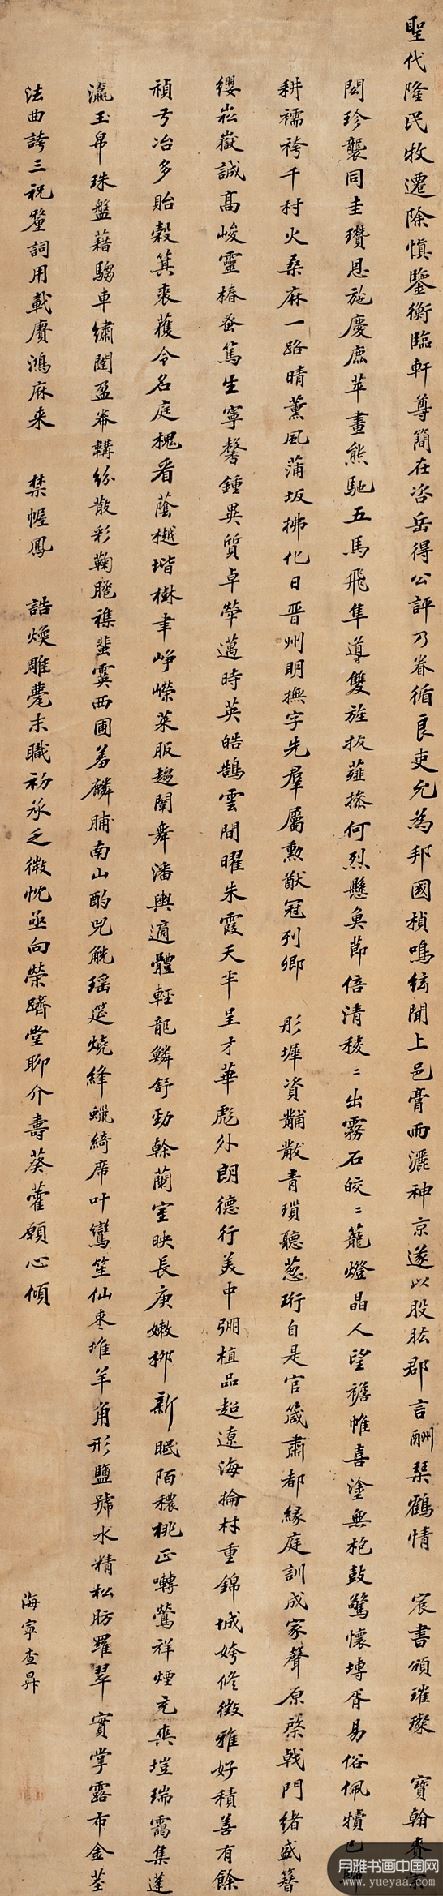 聖代隆民牧遷除慎鑒衡臨軒尊簡在咨岳得公評乃眷循良吏允為邦國楨鳴絃聞上邑膏雨灑神京遂以股肱郡言酬琴鶴情 宸書頒璀璨 寶翰
閟珍襲同圭瓚恩施慶鹿苹畫熊馳五馬飛隼導雙旌拔薤操何烈懸魚節倍清稜〻出霧石皎〻籠燈晶人望襜帷喜塗無枹鼓驚懷塼胥易俗佩犢已
耕襦袴千村火桑麻一路晴薰風蒲坂拂化日晉州明撫字先群屬勲猷冠列卿 彤墀資黼黻青瑣聽蔥珩自是官箴肅都緣庭訓成家聲原棨戟門緒盛簪
纓崧嶽誠高峻靈椿發篤生寧馨鍾異質卓犖邁時英皓鵠雲間曜朱霞天半呈才華彪外朗德行美中弸植品超遼海掄材重錦城姱修徵雅好積善有餘
禎弓冶多貽穀箕裘獲令名庭槐看蔭樾堦樹聿崢嶸萊服趨闌舞潘輿適體輕龍鱗舒勁幹蘭室映長庚嫩柳新眠陌穠桃正囀鶯祥煙充奧塏瑞靄集蓬
瀛玉帛珠盤藉驂車繡閣盈帣韝紛散彩鞠跽襍蜚霙西圃羞麟脯南山酌兕觥瑤筵燒絳蠟綺席叶鸞笙仙棗堆羊角形鹽號水精松肪羅翠實掌露市金莖
法曲誇三祝蕪詞用載賡鴻庥来 禁幄鳳 誥煥雕甍末職初承乏微忱亟向榮躋堂聊介壽葵藿願心傾
海寧查昇
月雅书画中国网
www.yueyaa.com